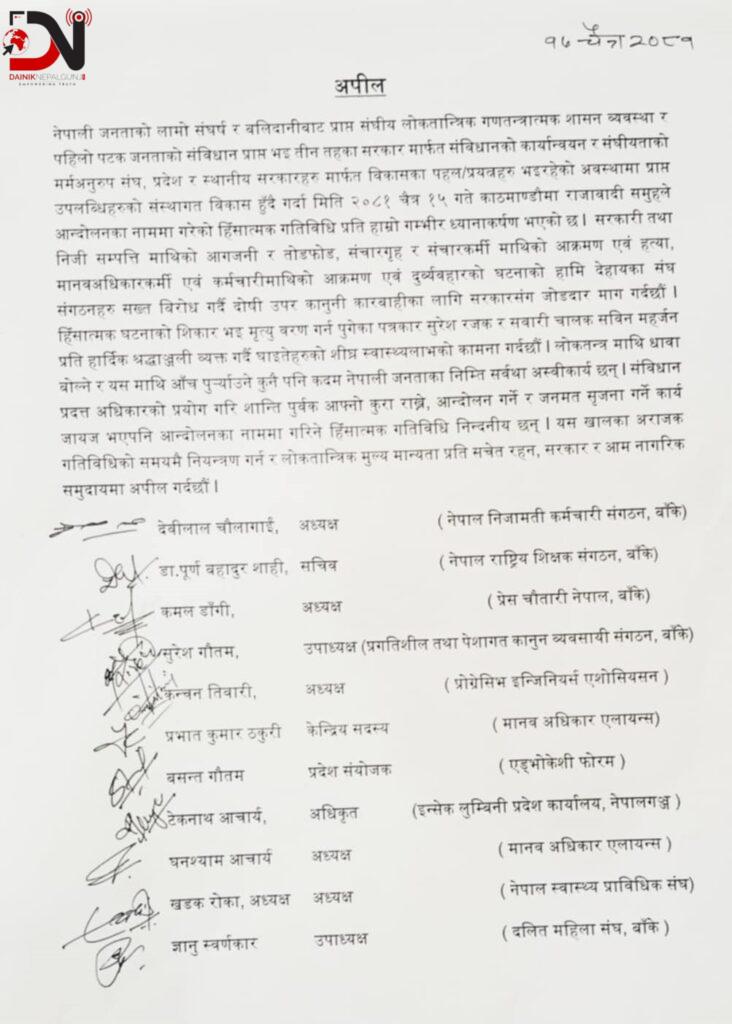 DN
DAINIKNEPALGUNJ
EMPOWERING TRUTH
१७ चैत्र २०८१
अपील
नेपाली जनताको लामो संघर्ष र बलिदानीबाट प्राप्त संघीय लोकतान्त्रिक गणतन्त्रात्मक शासन व्यवस्था र
पहिलो पटक जनताको संविधान प्राप्त भइ तीन तहका सरकार मार्फत संविधानको कार्यान्वयन र संघीयताको
मर्मअनुरुप संघ, प्रदेश र स्थानीय सरकारहरु मार्फत विकासका पहल/प्रयत्नहरु भइरहेको अवस्थामा प्राप्त
उपलब्धिहरुको संस्थागत विकास हुँदै गर्दा मिति २०८१ चैत्र १५ गते काठमाण्डौमा राजावादी समुहले
आन्दोलनका नाममा गरेको हिँसात्मक गतिविधि प्रति हाम्रो गम्भीर ध्यानाकर्षण भएको छ। सरकारी तथा
निजी सम्पत्ति माथिको आगजनी र तोडफोड, संचारगृह र संचारकर्मी माथिको आक्रमण एवं हत्या,
मानवअधिकारकर्मी एवं कर्मचारीमाथिको आक्रमण एवं दुर्व्यवहारको घटनाको हामि देहायका संघ
संगठनहरु सख्त विरोध गर्दै दोषी उपर कानुनी कारबाहीका लागि सरकारसंग जोडदार माग गर्दछौं ।
हिँसात्मक घटनाको शिकार भइ मृत्यु वरण गर्न पुगेका पत्रकार सुरेश रजक र सवारी चालक सविन महर्जन
प्रति हार्दिक श्रद्धाञ्जली व्यक्त गर्दै घाइतेहरुको शीघ्र स्वास्थ्यलाभको कामना गर्दछौं । लोकतन्त्र माथि धावा
बोल्ने र यस माथि आँच पुर्‍याउने कुनै पनि कदम नेपाली जनताका निम्ति सर्वथा अस्वीकार्य छन् । संविधान
प्रदत्त अधिकारको प्रयोग गरि शान्ति पुर्वक आफ्नो कुरा राख्ने, आन्दोलन गर्ने र जनमत सृजना गर्ने कार्य
जायज भएपनि आन्दोलनका नाममा गरिने हिँसात्मक गतिविधि निन्दनीय छन् । यस खालका अराजक
गतिविधिको समयमै नियन्त्रण गर्न र लोकतान्त्रिक मुल्य मान्यता प्रति सचेत रहन, सरकार र आम नागरिक
समुदायमा अपील गर्दछौं ।
देवीलाल चौलागाईं, अध्यक्ष ( नेपाल निजामती कर्मचारी संगठन, बाँके)
डा.पूर्ण बहादुर शाही, सचिव ( नेपाल राष्ट्रिय शिक्षक संगठन, बाँके)
कमल डाँगी, अध्यक्ष ( प्रेस चौतारी नेपाल, बाँके)
सुरेश गौतम, उपाध्यक्ष (प्रगतिशील तथा पेशागत कानुन व्यवसायी संगठन, बाँके)
कन्चन तिवारी, अध्यक्ष ( प्रोग्रेसिभ इन्जिनियर्स एशोसियसन )
प्रभात कुमार ठकुरी केन्द्रिय सदस्य ( मानव अधिकार एलायन्स)
बसन्त गौतम प्रदेश संयोजक ( एड्भोकेशी फोरम )
टेकनाथ आचार्य, अधिकृत (इन्सेक लुम्बिनी प्रदेश कार्यालय, नेपालगञ्ज )
घनश्याम आचार्य अध्यक्ष ( मानव अधिकार एलायन्स )
खडक रोका, अध्यक्ष अध्यक्ष ( नेपाल स्वास्थ्य प्राविधिक संघ)
ज्ञानु स्वर्णकार उपाध्यक्ष ( दलित महिला संघ, बाँके )